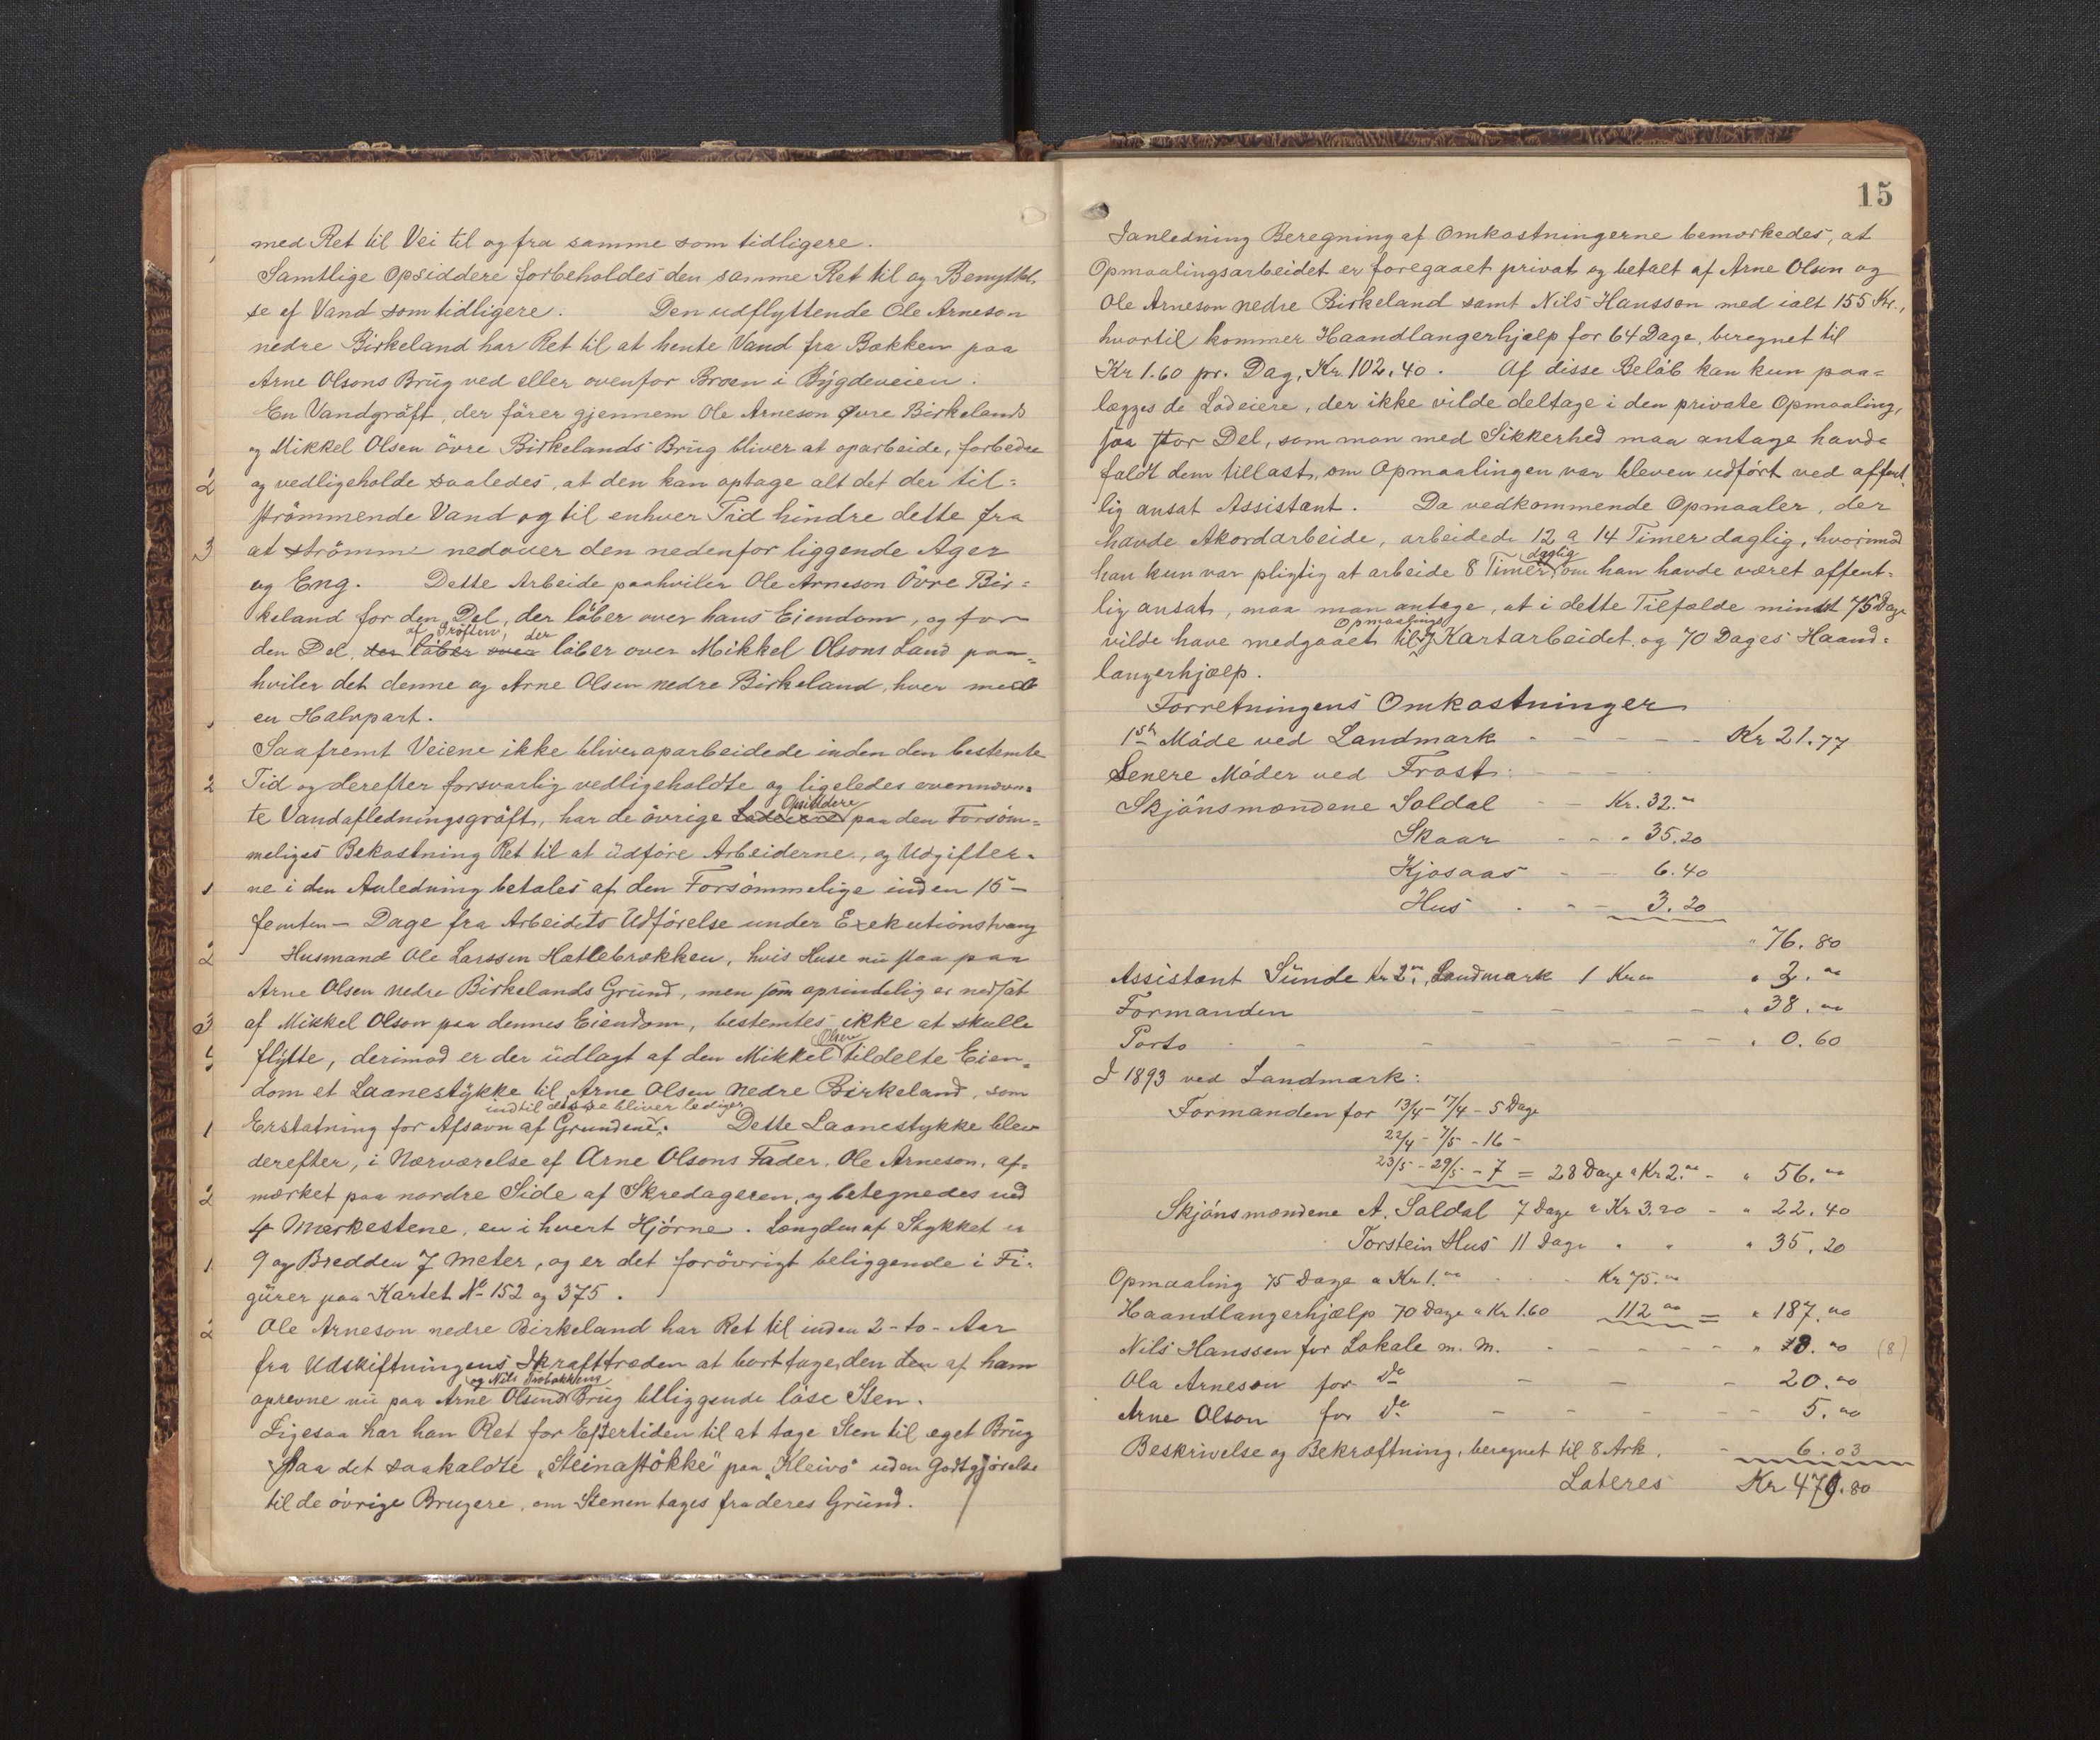 med Ret til Vei til og fra samme som tidligere.
Samtlige Opsiddere forbeholdes den samme Ret til og Benyttel-
se af Vand som tidligere. Den udflyttende Ole Arneson
nedre Birkeland har Ret til at hente Vand fra Bækken paa
Arne Olsons Brug ved eller ovenfor Broen i Bygdeveien.
En Vandgrøft, der fører gjennem Ole Arneson Øvre Birkelands
og Mikkel Olsen övre Birkelands Brug bliver at oparbeide, forbedre
og vedligeholde saaledes, at den kan optage alt det der til=
strömmende Vand og til enhver Tid hindre dette fra
at strömme nedover den nedenfor liggende Ager
og Eng. Dette Arbeide paahviler Ole Arneson Övre Bir=
keland for den Del, der löber over hans Eiendom, og for
af Gröften, der
den Del der löber over löber over Mikkel Olsons Land paa=
hviler det denne og Arne Olsen nedre Birkeland, hver med
en Halvpart.
Saafremt Veiene ikke bliver oparbeidede inden den bestemte
Tid og derefter forsvarlig vedligeholdte og ligeledes ovennævn=
Opsiddere
te Vandafledningsgröft, har de övrige Lodeiere paa den Forsöm=
meliges Bekostning Ret til at udföre Arbeiderne, og Udgifter=
ne i den Anledning betales af den Forsömmelige inden 15-
femten- Dage fra Arbeidets Udförelse under Exekutionstvang
Husmand Ole Larssen Hatlebrækken, hvis Huse nu staa paa
Arne Olsen nedre Birkelands Grund, men som oprindelig er nedsat
af Mikkel Olson paa dennes Eiendom, bestemtes ikke at skulle
Olsen
flytte, derimod er der udlagt af den Mikkel tildelte Eien=
dom et Laanestykke til Arne Olsen nedre Birkeland, som
indtil disse bliver lediger
Erstatning for Afsavn af Grundene. Dette Laanestykke blev
derefter, i Nærværelse af Arne Olsons Fader, Ole Arneson, af=
mærket paa nordre Side af Skredageren, og betegnedes ved
4 Mærkestene, en i hvert Hjörne. Længden af Stykket er
9 og Bredden 7 Meter, og er det forövrigt beliggende i Fi-
gurer paa Kartet No 152 og 375.
Ole Arneson nedre Birkeland har Ret til inden 2-to- Aar
fra Udskiftningens Ikrafttræden at borttage den den af ham
og Nils
oprevne nu paa Arne Olsens Brug beliggende löse Sten.
Ligesaa har han Ret for Eftertiden til at tage Sten til eget Brug
Paa det saakaldte „Steinastökke" paa „Kleivo" uden Godtgjörelse
til de övrige Brugere, om Stenen tages fra deres Grund.
15
Ianledning Beregning af Omkostningerne bemærkedes, at
Opmaalingsarbeidet er foregaaet privat og betalt af Arne Olsen og
Ole Arneson nedre Birkeland samt Nils Hansson med ialt 155 Kr.,
hvortil kommer Haandlangerhjælp for 64 Dage, beregnet til
Kr 1.60 pr. Dag, Kr. 102.40. Af disse Beløb kan kun paa=
lægges de Lodeiere, der ikke vilde deltage i den private Opmaaling,
saa stor Del, som man med Sikkerhed maa antage havde
faldt dem tillast, om Opmaalingen var bleven udført ved offent-
lig ansat Assistent. Da vedkommende Opmaaler, der
havde Akordarbeide, arbeidede 12 a 14 Timer daglig, hvorimod
daglig
han kun var pligtig at arbeide 8 Timer om han havde været offent-
lig ansat, maa man antage, at i dette Tilfælde mindst 75 Dage
Opmaalings
vilde have medgaaet til Kartarbeidet og 70 Dages Haand=
langerhjælp.
Forretningens Omkostninger
1ste Møde ved Landmark - - - - - Kr 21.77
Senere Møder ved Frost: - - -
Skjönsmændene Soldal - - Kr. 32.00
Skaar - - „ 35.20
Kjosaas - - 6.40
Hus - - 3.20
„ 76.80
Assistent Sunde Kr 2.00, Landmark 1 Krone „ 3.00
Formanden - - - - „ 38.00
Porto - - - - - - - „ 0.60
I 1893 ved Landmark:
Formanden for 13/4 - 17/4 - 5 Dage
22/4 - 7/5 - 16 -
23/5 - 29/5 - 7 = 28 Dage a Kr 2.00 - „ 56.00
Skjönsmændene A. Soldal 7 Dage a Kr 3.20 - „ 22.40
Torstein Hus 11 Dage „ „ „ 35.20
Opmaaling 75 Dage a Kr 1.00 Kr 75.00
Haandlangerhjælp 70 Dage a Kr 1.60 112.00 = „ 187.00
Nils Hanssen for Lokale m. m. - - - - - „ 8.00 (8)
Ola Arneson for Do - - - 20.00
Arne Olson for Do - - - - - 5.00
Beskrivelse og Bekræftning, beregnet til 8 Ark. - 6.03
Lateres Kr 479.80